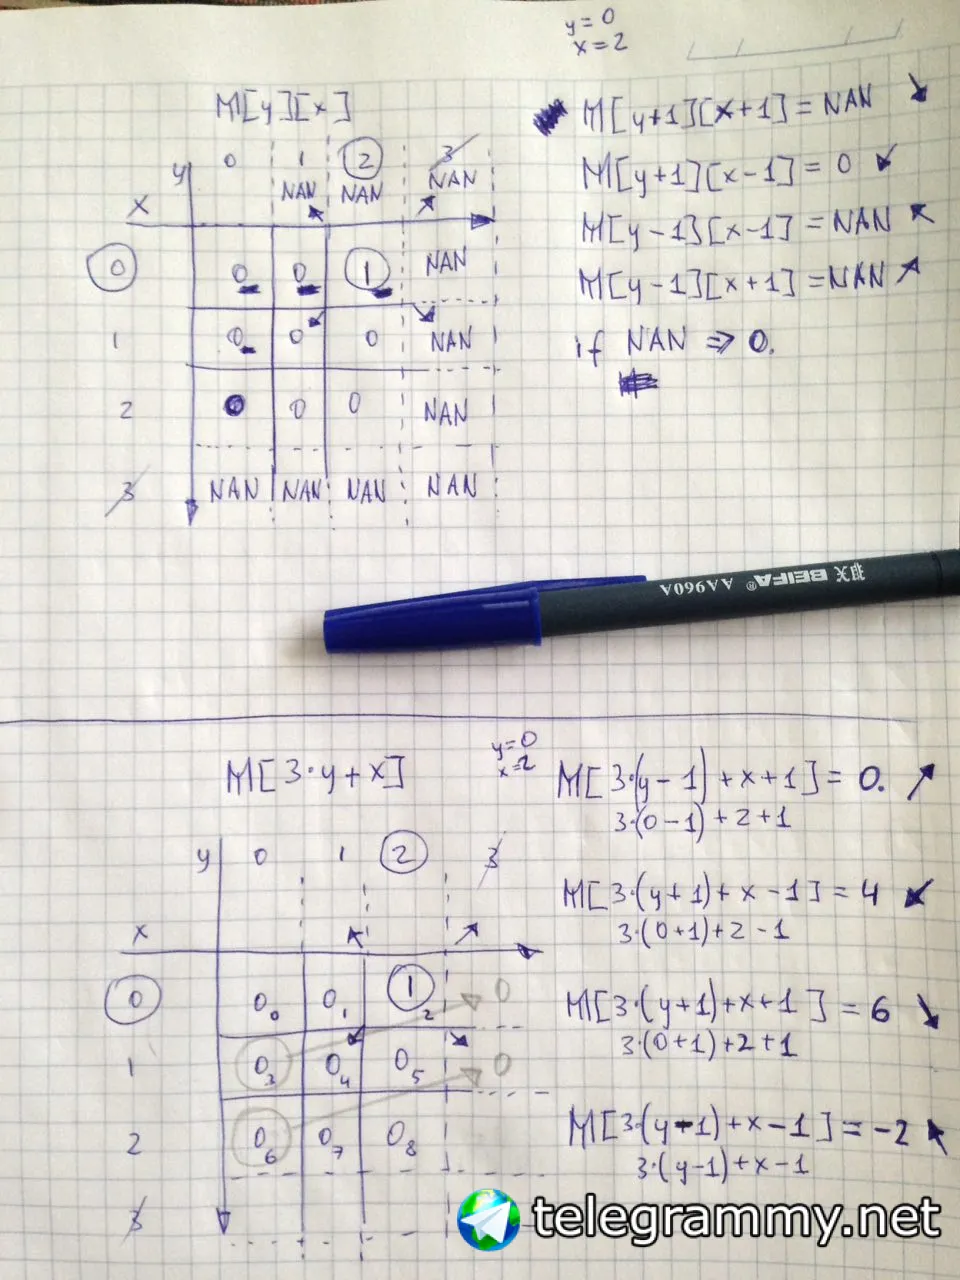 y=0
x=2
M[y][x]
y 0 1 ② 3
x NAN NAN NAN
0 0 0 1 NAN
1 0 0 0 NAN
2 0 0 0 NAN
3 NAN NAN NAN NAN
M[y+1][x+1]=NAN ↘
M[y+1][x-1]=0 ↙
M[y-1][x-1]=NAN ↖
M[y-1][x+1]=NAN ↗
if NAN => 0.
AA960A ® BEIFA
M[3·y+x]
y=0
x=2
y 0 1 2 3
x
0 0₀ 0₁ 1₂ 0
1 0₃ 0₄ 0₅ 0
2 0₆ 0₇ 0₈
3
M[3·(y-1)+x+1]=0. ↗
3·(0-1)+2+1
M[3·(y+1)+x-1]=4 ↙
3·(0+1)+2-1
M[3·(y+1)+x+1]=6 ↘
3·(0+1)+2+1
M[3·(y-1)+x-1]=-2 ↖
3·(y-1)+x-1
telegrammy.net